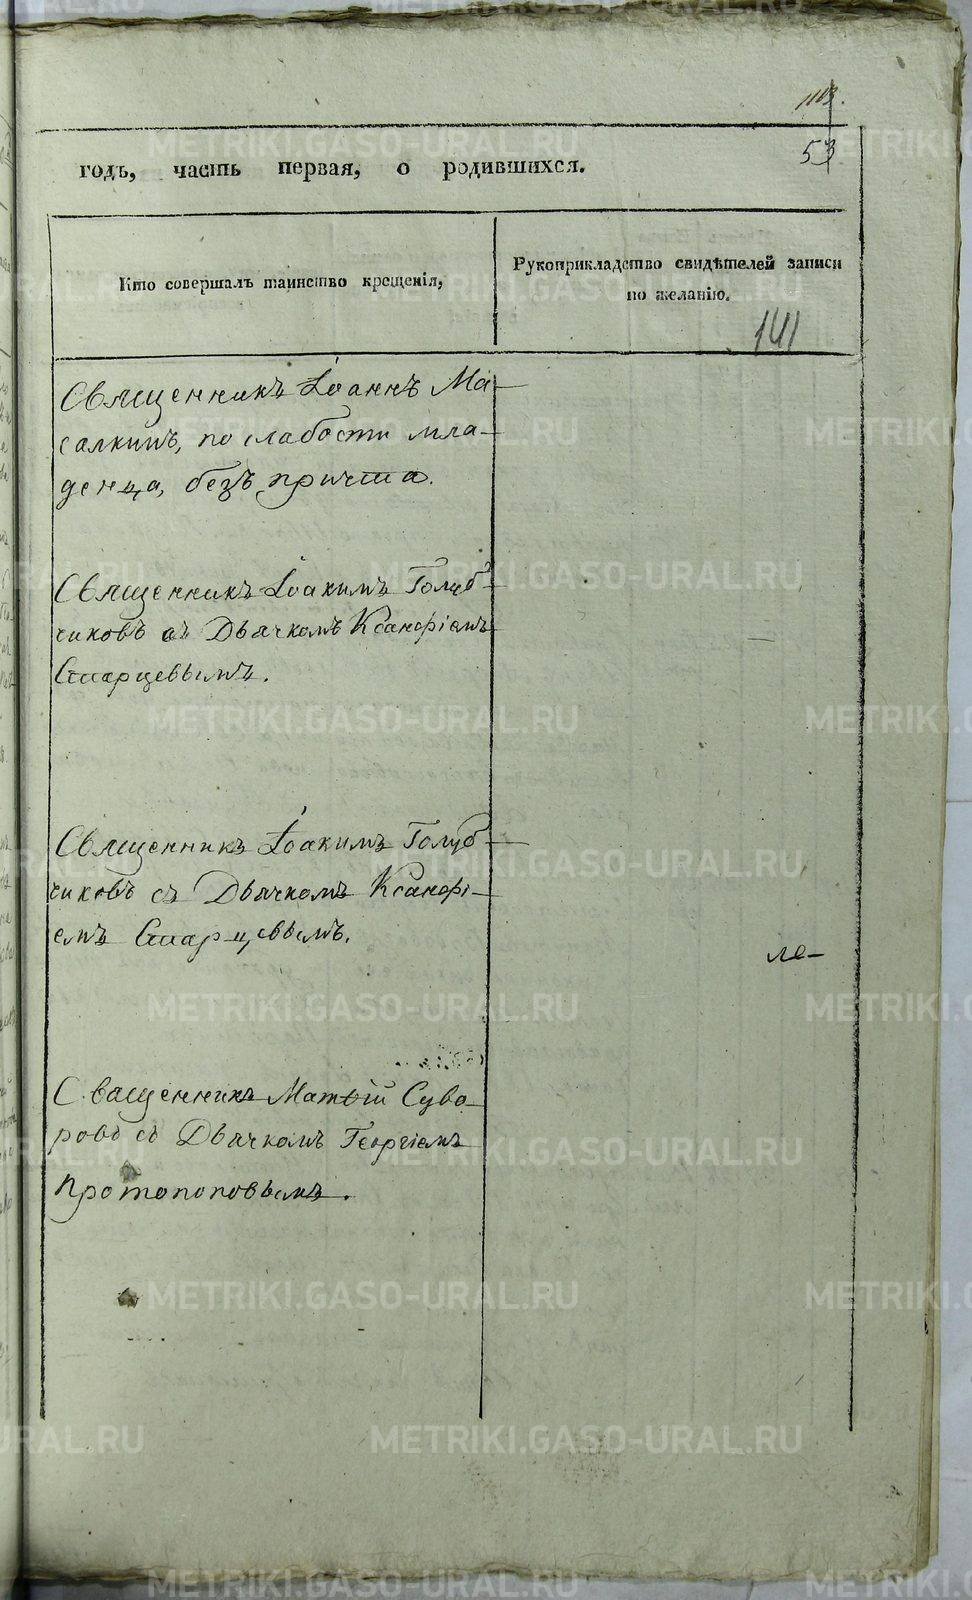 113.
53
годъ, часть первая, о родившихся.
Кто совершалъ таинство крещенія,
Рукоприкладство свидѣтелей записи
по желанію.
141
Священникъ Іоаннъ Ма-
салкинъ, по слабости мла-
денца, безъ причта.
Священникъ Іоакимъ Голуб-
чиковъ съ Дьячкомъ Ксанфіемъ
Старцевымъ.
Священникъ Іоакимъ Голуб-
чиковъ съ Дьячкомъ Ксанфі-
емъ Старцевымъ.
ле-
Сващенникъ Матѳій Суво-
ровъ съ Дьячкомъ Георгіемъ
Протопоповымъ.
METRIKI.GASO-URAL.RU